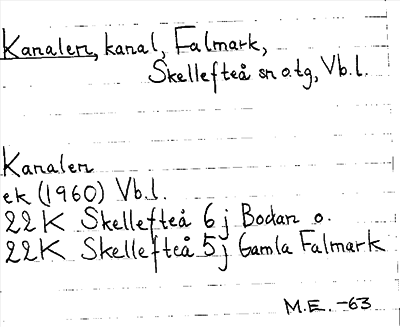 Kanalen, kanal, Falmark,
Skellefteå sn o. tg, Vb. l.
Kanalen
ek (1960) Vb. l.
22K Skellefteå 6 j Bodan o.
22K Skellefteå 5 j Gamla Falmark
M.E. -63